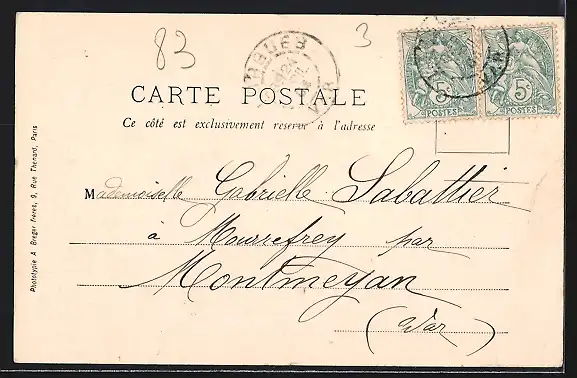 83
3
5c
POSTES
5c
POSTES
VAR
CARTE POSTALE
Ce côté est exclusivement réservé à l'adresse
Mademoiselle Gabrielle Sabattier
à Mourrefrey par
Montmeyan
(Var)
Phototypie A. Breger Frères, 9, Rue Thénard, Paris